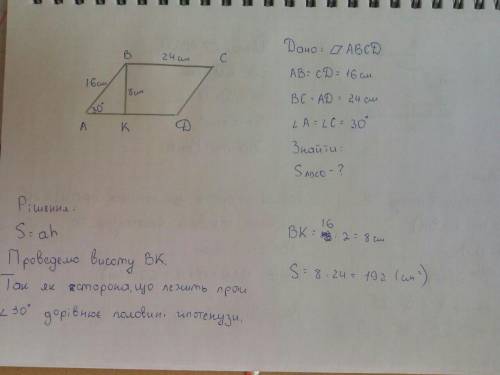 B 24см C
16см 8см
30°
A K D
Дано: ▱ ABCD
AB = CD = 16см
BC = AD = 24 см
∠A = ∠C = 30°
Знайти:
S ABCD - ?
Рішення:
S = ah
Проведемо висоту BK.
Так як сторона, що лежить проти
∠30° дорівнює половині гіпотенузи.
BK = 16 : 2 = 8 см
S = 8 · 24 = 192 (см²)